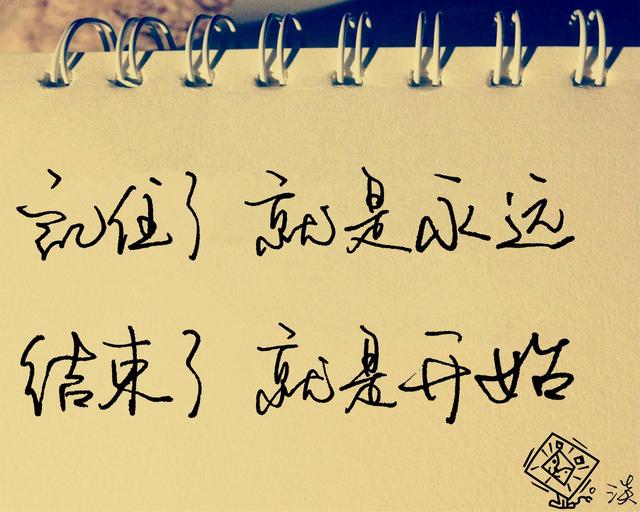 記住了 就是永远
结束了 就是开始
淡